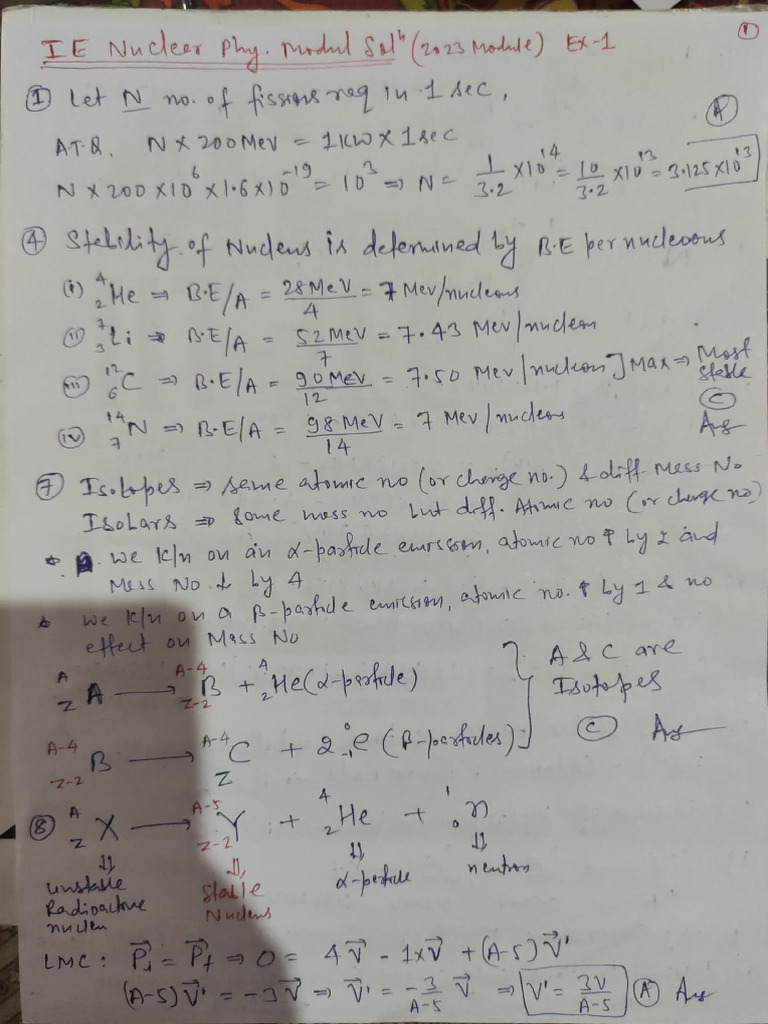 ①
IE Nuclear Phy. Modul Solⁿ (2023 Module) Ex-1
① Let N no. of fissions req in 1 sec,
A.T.Q. N × 200 MeV = 1 KW × 1 sec
N × 200 × 10⁶ × 1.6 × 10⁻¹⁹ = 10³ ⇒ N = 1/3.2 × 10¹⁴ = 10/3.2 × 10¹³ = 3.125 × 10¹³ Ⓐ
④ Stability of Nucleus is determined by B.E per nucleons
(i) ⁴₂He ⇒ B.E/A = 28 MeV/4 = 7 Mev/nucleons
(ii) ⁷₃Li ⇒ B.E/A = 52 MeV/7 = 7.43 Mev/nucleon
(iii) ¹²₆C ⇒ B.E/A = 90 MeV/12 = 7.50 Mev/nucleon] Max ⇒ Most Stable
(iv) ¹⁴₇N ⇒ B.E/A = 98 MeV/14 = 7 Mev/nucleons Ⓒ Ans
⑦ Isotopes ⇒ same atomic no (or charge no.) & diff Mass No
Isobars ⇒ same mass no but diff. Atomic no (or charge no)
* we k/n on an α-particle emission, atomic no ↓ by 2 and
Mass No ↓ by 4
* we k/n on a β-particle emission, atomic no. ↑ by 1 & no
effect on Mass No
ᴬ_Z A → ᴬ⁻⁴_Z₋₂ B + ⁴₂He (α-particle)
ᴬ⁻⁴_Z₋₂ B → ᴬ⁻⁴_Z C + 2 ⁰₋₁e (β-particles)
A & C are
Isotopes
Ⓒ Ans
⑧ ᴬ_Z X → ᴬ⁻⁵_Z₋₂ Y + ⁴₂He + ¹₀n
⇓ ⇓ ⇓ ⇓
unstable Radioactive nuclei
Stable Nucleus
α-particle
neutron
LMC: P⃗ᵢ = P⃗f ⇒ 0 = 4V⃗ - 1×V⃗ + (A-5)V⃗'
(A-5)V⃗' = -3V⃗ ⇒ V⃗' = -3/(A-5) V⃗ ⇒ V' = 3V/(A-5) Ⓐ Ans